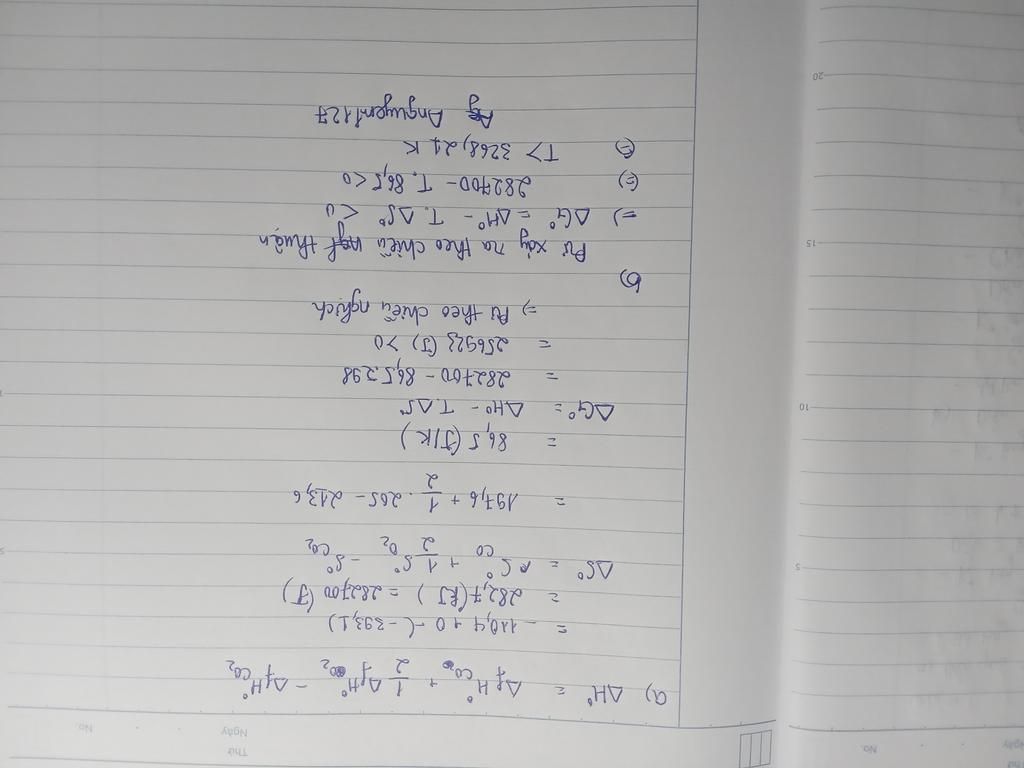 Thứ
Ngày No.
a) ΔH° = Δ_f H°_CO + 1/2 Δ_f H°_O₂ - Δ_f H°_CO₂
= -110,4 + 0 - (-393,1)
= 282,7 (kJ) = 282700 (J)
ΔS° = S°_CO + 1/2 S°_O₂ - S°_CO₂
= 197,6 + 1/2 . 205 - 213,6
= 86,5 (J/K)
ΔG° = ΔH° - T.ΔS°
= 282700 - 86,5.298
= 256923 (J) > 0
⇒ Pứ theo chiều nghịch
b)
Pứ xảy ra theo chiều thuận
⇒ ΔG° = ΔH° - T.ΔS° < 0
(=) 282700 - T. 86,5 < 0
(=) T > 3268,21 K
Anguyen1127
No.
Thứ
Ngày
5
10
15
20